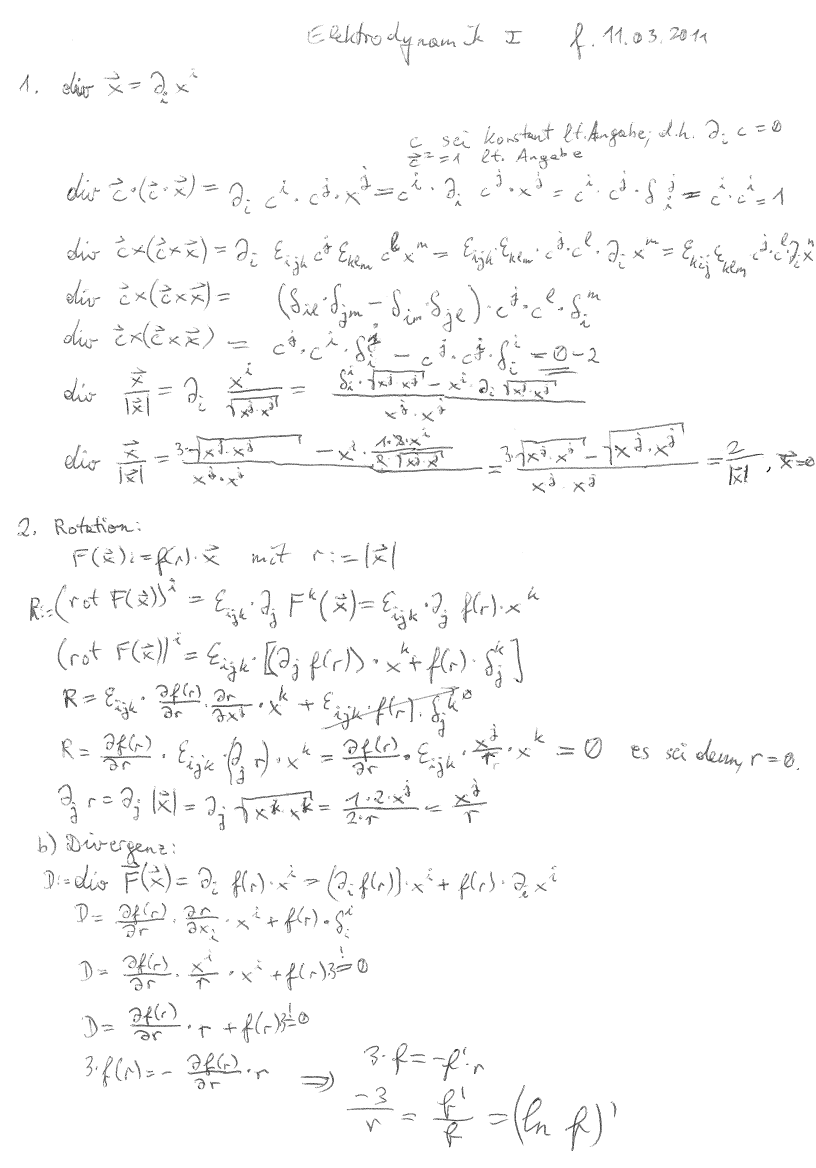 Elektrodynamik I f. 11.03.2011
1. div x⃗ = ∂_i x^i
c sei konstant lt. Angabe, d.h. ∂_i c = 0
c⃗² = 1 lt. Angabe
div c⃗·(c⃗·x⃗) = ∂_i c^i·c^j·x^j = c^i·∂_i c^j·x^j = c^i·c^j·δ_i^j = c^i·c^i = 1
div c⃗×(c⃗×x⃗) = ∂_i ε_ijk c^j ε_klm c^l x^m = ε_ijk·ε_klm·c^j·c^l·∂_i x^m = ε_kij ε_klm c^j·c^l ∂_i x^m
div c⃗×(c⃗×x⃗) = (δ_il·δ_jm − δ_im·δ_jl)·c^j·c^l·δ_i^m
div c⃗×(c⃗×x⃗) = c^j·c^i·δ_i^j − c^j·c^j·δ_i^i = 0−2
div x⃗/|x⃗| = ∂_i x^i/√(x^j·x^j) = (δ_i^i·√(x^j·x^j) − x^i·∂_i √(x^j·x^j))/(x^j·x^j)
div x⃗/|x⃗| = (3·√(x^j·x^j) − x^i·(1·2·x^i)/(2·√(x^j·x^j)))/(x^j·x^j) = (3·√(x^j·x^j) − √(x^j·x^j))/(x^j·x^j) = 2/|x⃗|, x⃗≠0
2. Rotation:
F(x⃗) := f(r)·x⃗ mit r := |x⃗|
R:=(rot F(x⃗))^i = ε_ijk·∂_j F^k(x⃗) = ε_ijk·∂_j f(r)·x^k
(rot F(x⃗))^i = ε_ijk·[(∂_j f(r))·x^k + f(r)·δ_j^k]
R = ε_ijk·∂f(r)/∂r·∂r/∂x^j·x^k + ε_ijk·f(r)·δ_j^k 0
R = ∂f(r)/∂r·ε_ijk·(∂_j r)·x^k = ∂f(r)/∂r·ε_ijk·x^j/r·x^k = 0 es sei denn, r=0.
∂_j r = ∂_j |x⃗| = ∂_j √(x^k·x^k) = (1·2·x^j)/(2·r) = x^j/r
b) Divergenz:
D:=div F⃗(x⃗) = ∂_i f(r)·x^i = (∂_i f(r))·x^i + f(r)·∂_i x^i
D = ∂f(r)/∂r·∂r/∂x_i·x^i + f(r)·δ_i^i
D = ∂f(r)/∂r·x^i/r·x^i + f(r)·3 =! 0
D = ∂f(r)/∂r·r + f(r)·3 =! 0
3·f(r) = −∂f(r)/∂r·r ⇒ 3·f = −f'·r
−3/r = f'/f = (ln f)'